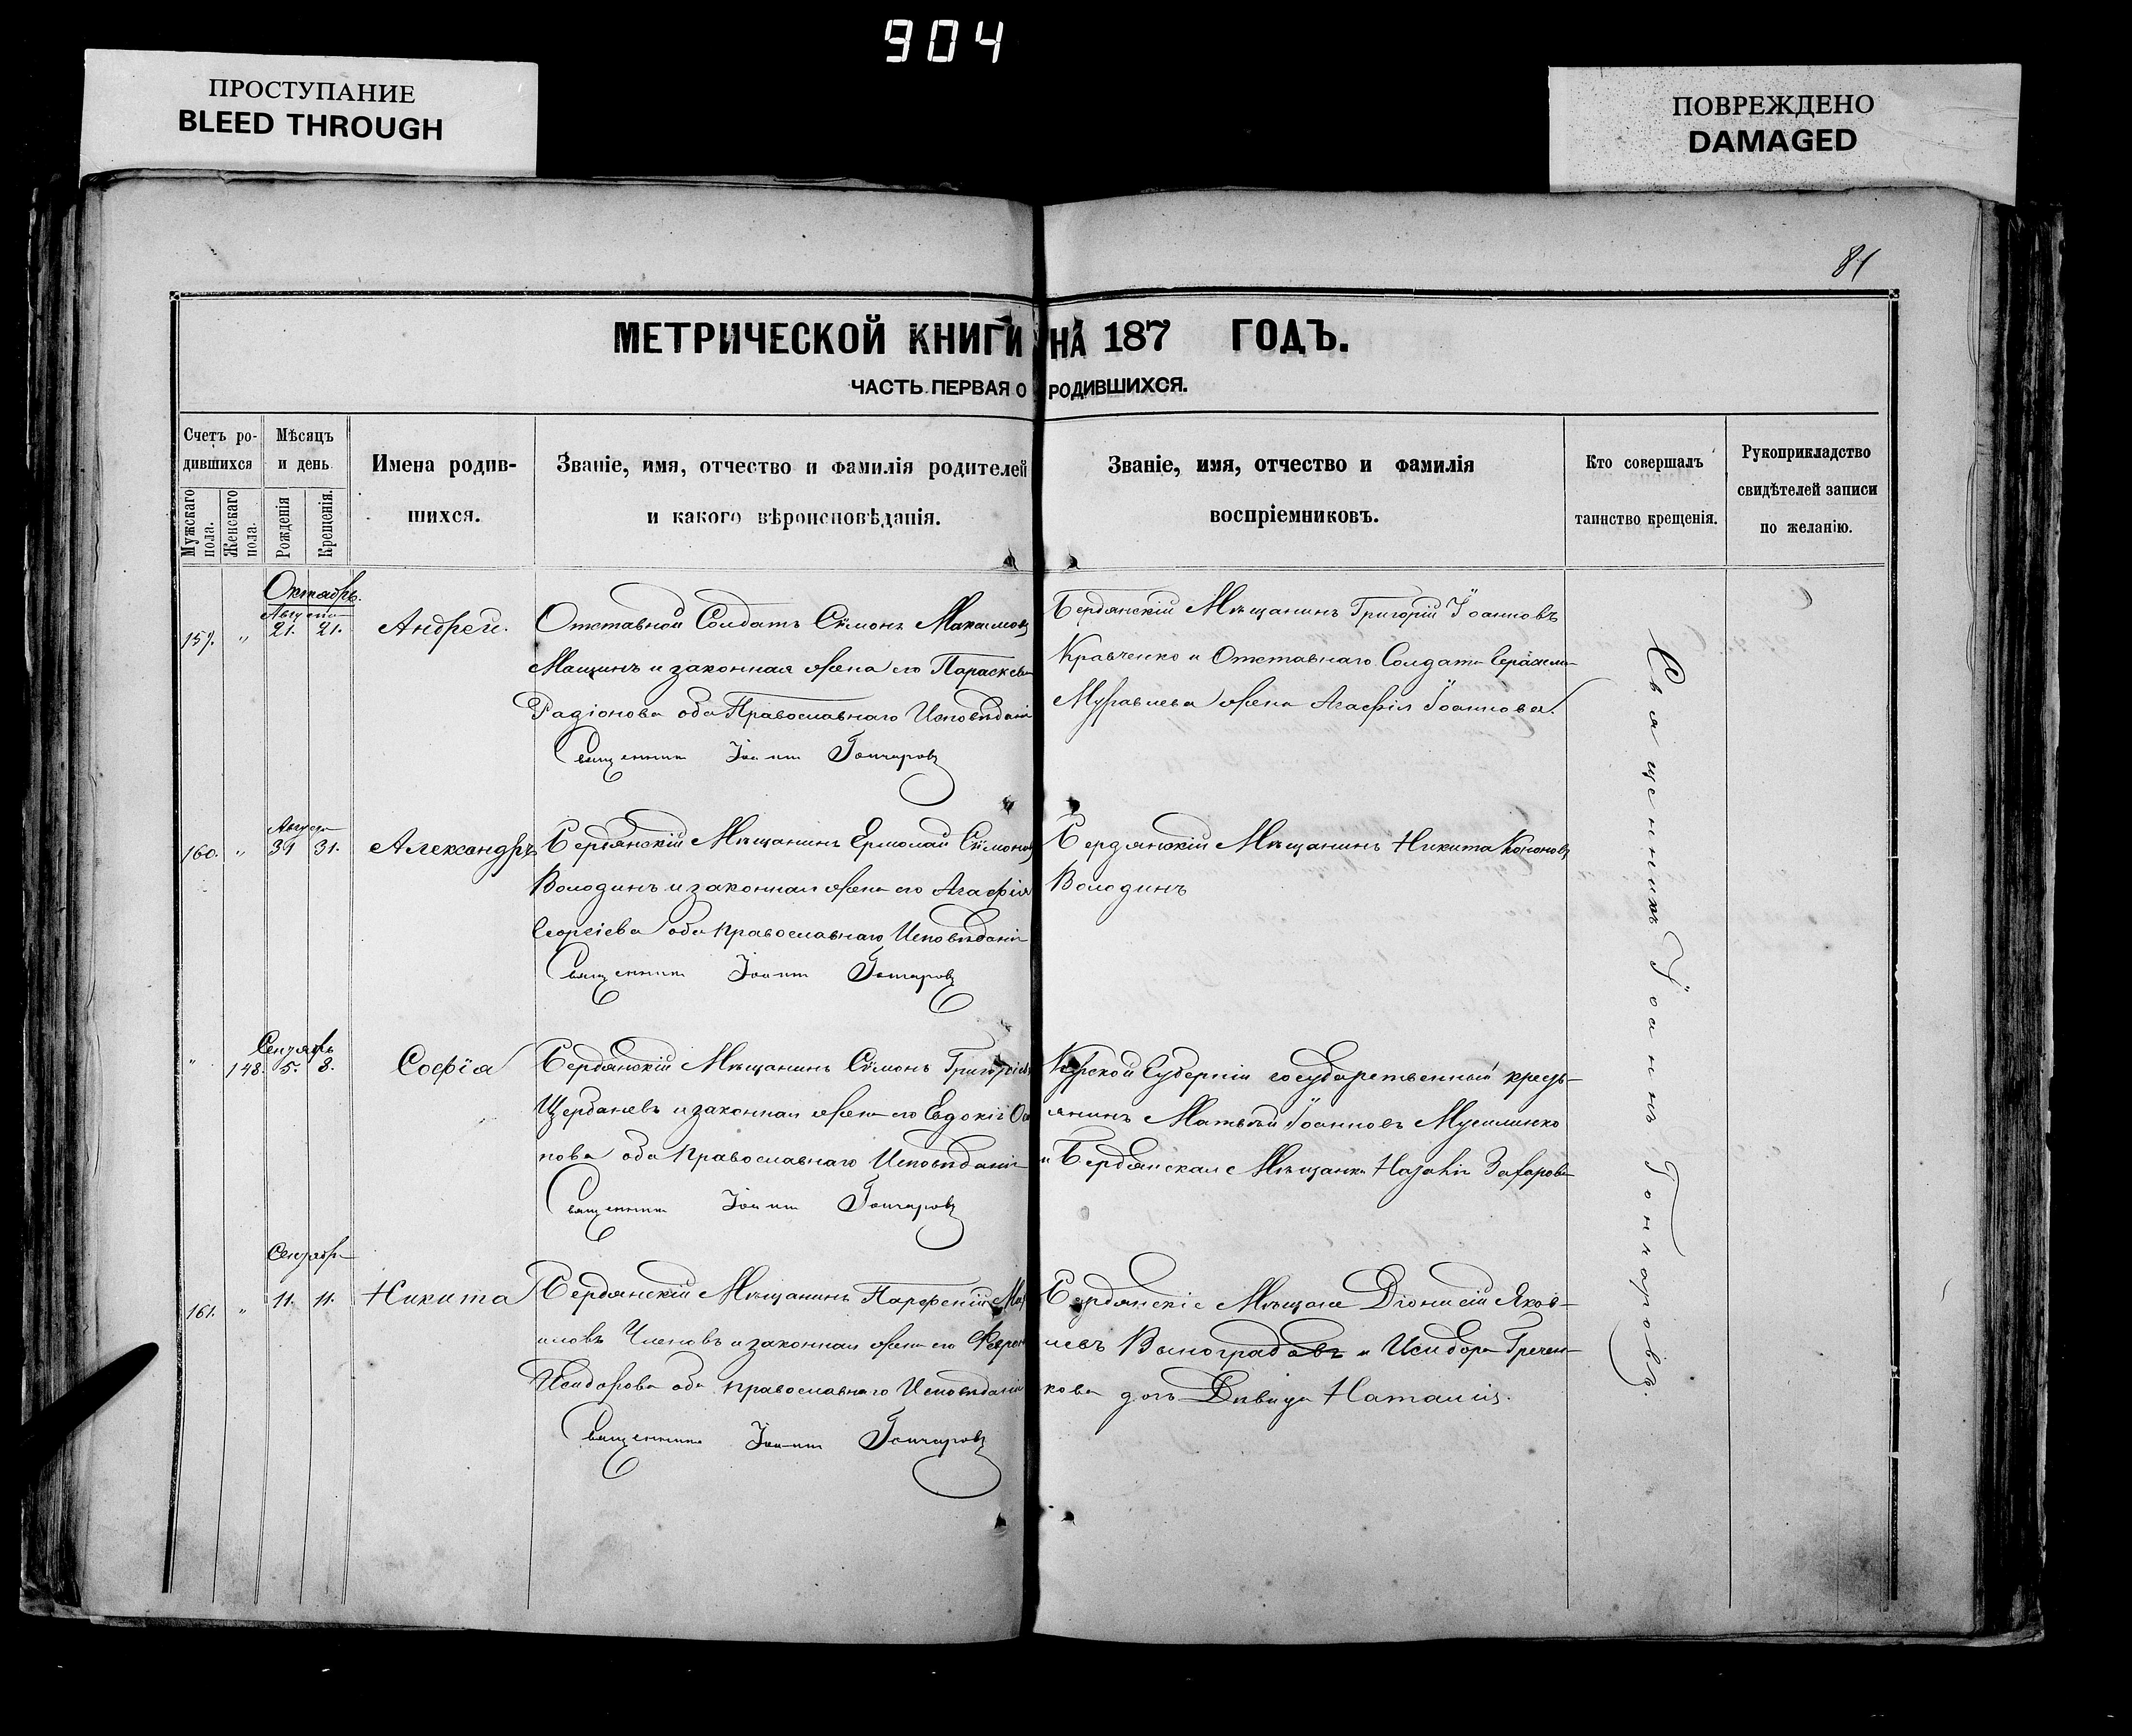 904
ПРОСТУПАНИЕ
BLEED THROUGH
ПОВРЕЖДЕНО
DAMAGED
81
МЕТРИЧЕСКОЙ КНИГИ НА 187 ГОДЪ.
ЧАСТЬ ПЕРВАЯ О РОДИВШИХСЯ.
Счетъ ро-
дившихся
Мужскаго пола.
Женскаго пола.
Мѣсяцъ
и день
Рожденія
Крещенія.
Имена родив-
шихся.
Званіе, имя, отчество и фамилія родителей
и какого вѣроисповѣданія.
Званіе, имя, отчество и фамилія
воспріемниковъ.
Кто совершалъ
таинство крещенія.
Рукоприкладство
свидѣтелей записи
по желанію.
Октябрь.
Августа
159. " 21. 21. Андрей.
Отставной Солдатъ Сѵмонъ Максимовъ
Мащинъ и законная жена его Параскева
Радіонова оба Православнаго Исповѣданія
Священникъ Іоаннъ Гончаровъ
Бердянскій Мѣщанинъ Григорій Іоанновъ
Кравченко и Отставнаго Солдата Герасима
Муравьева жена Агафія Іоаннова.
Августа
160. " 31. Александръ
Бердянскій Мѣщанинъ Ермолай Сѵмоновъ
Володинъ и законная жена его Агафія
Георгіева оба православнаго Исповѣданія
Священникъ Іоаннъ Гончаровъ
Бердянскій Мѣщанинъ Никита Кононовъ
Володинъ
Сентябрь
" 148. 5. 8. Софія
Бердянскій Мѣщанинъ Сѵмонъ Григорьевъ
и законная жена его Евдокія
нова оба Православнаго Исповѣданія
Священникъ Іоаннъ Гончаровъ
Курской Губерніи государственный кресть-
янинъ Матвѣй Іоанновъ
и Бердянская Мѣщанка Захарова
Сентября
161. " 11. 11. Никита
Бердянскій Мѣщанинъ Парфеній
Членовъ и законная жена его
Исидорова оба православнаго Исповѣданія
Священникъ Іоаннъ Гончаровъ
Бердянскіе Мѣщане Діонисій Яков-
левъ Виноградовъ и Исидора Гречен-
кова дочь Дѣвица Наталія.
Священникъ Іоаннъ Гончаровъ.